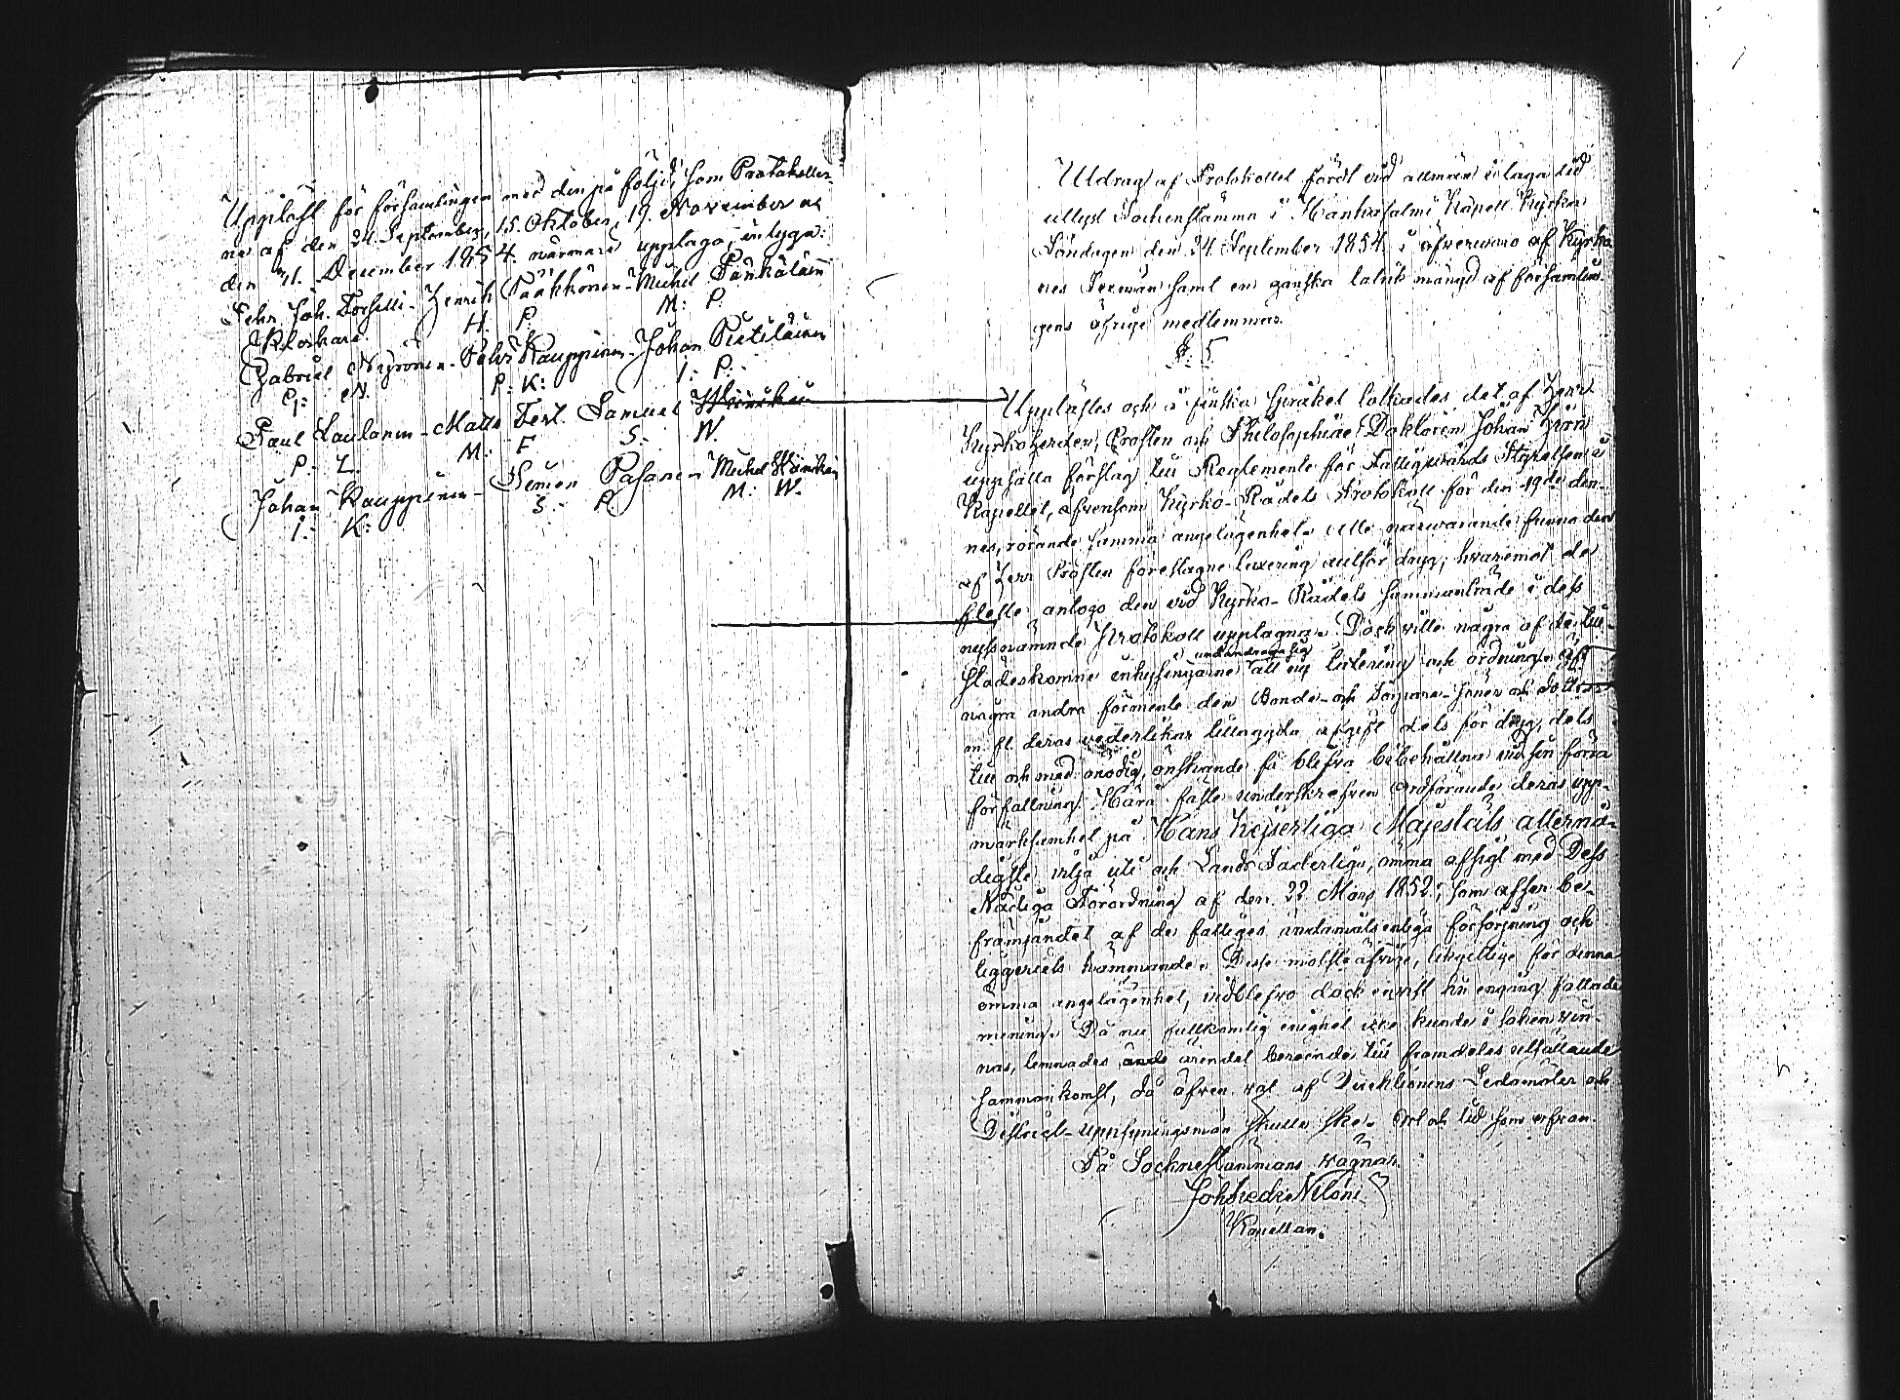 Uppläst för församlingen med den på följd, som Protokoller-
na af den 24 September, 15. Oktober, 19. November och
den 11. December 1854 närmare upplaga, intyga:
Joh. Forssell - Henrik Pääkkönen - Michel
Klockare. H. P. M: P.
Gabriel Nyrönen - Petter Kauppinen - Johan Pietiläinen
G: N. P: K: J: P:
Paul Laulanen - Matts Samuel
P: L. M: F S: W.
Johan Kauppinen - Simon Pasanen Michel
J: K: S: P. M: W.
Utdrag af Protokollet fördt vid allmän i laga tid
utlyst Sockenstämma i Hankasalmi Kapell Kyrka
Söndagen den 24 September 1854 i öfvervaro af Kyrko-
nes samt en ganska talrik mängd af församlin-
gens öfrige medlemmar.
§: 5.
Upplästes och å finska språket tolkades det af Herr
Kyrkoherden, Prosten och Philosophiæ Doktoren Johan
uppsatta förslag till Reglemente för Fattigvårds Styrelsen i
Kapellet, äfvensom Kyrko-Rådets Protokoll för den 19de den-
nes, rörande samma angelägenhet. Alle närvarande funno den
af Herr Prosten föreslagne taxering alltför dryg; hvaremot de
fleste antogo den vid Kyrko-Rådets sammanträde i dess
nyssnämnde Protokoll upptagna. Dock ville några af de till-
städeskomne inhysingarne undandraga sig all ny taxering och ordning. Åter
några andra förmente den Bonde- och Torpare-söner och döttrar
m. fl. deras vederlikar tillagda afgift dels för dryg, dels
till och med onödig, önskande få blifva bibehållna vid sin förra
författning. Härå fäste underskrefven Ordförande deras upp-
märksamhet på Hans Kejserliga Majestäts allernå-
digste vilja uti och Lands Faderliga, ömma afsigt med Dess
Nådiga Förordning af den 22 Mars 1852; som afser be-
främjandet af de fattiges ändamålsenliga försörjning och
tiggeriets hämmande. Desse motsträfvige, likgiltige för denna
ömma angelägenhet, vidblefvo dock envist sin engång fattade
mening. Då nu fullkomlig enighet icke kunde i saken vin-
nas, lemnades ärendet beroende till framdeles utsättande
sammankomst, då äfven val af Direktionens Ledamöter och
District-uppsyningsmän skulle ske. Ort och tid som ofvan.
På Sockenstämmans vägnar
Joh Fredr Niloni
Kapellan.